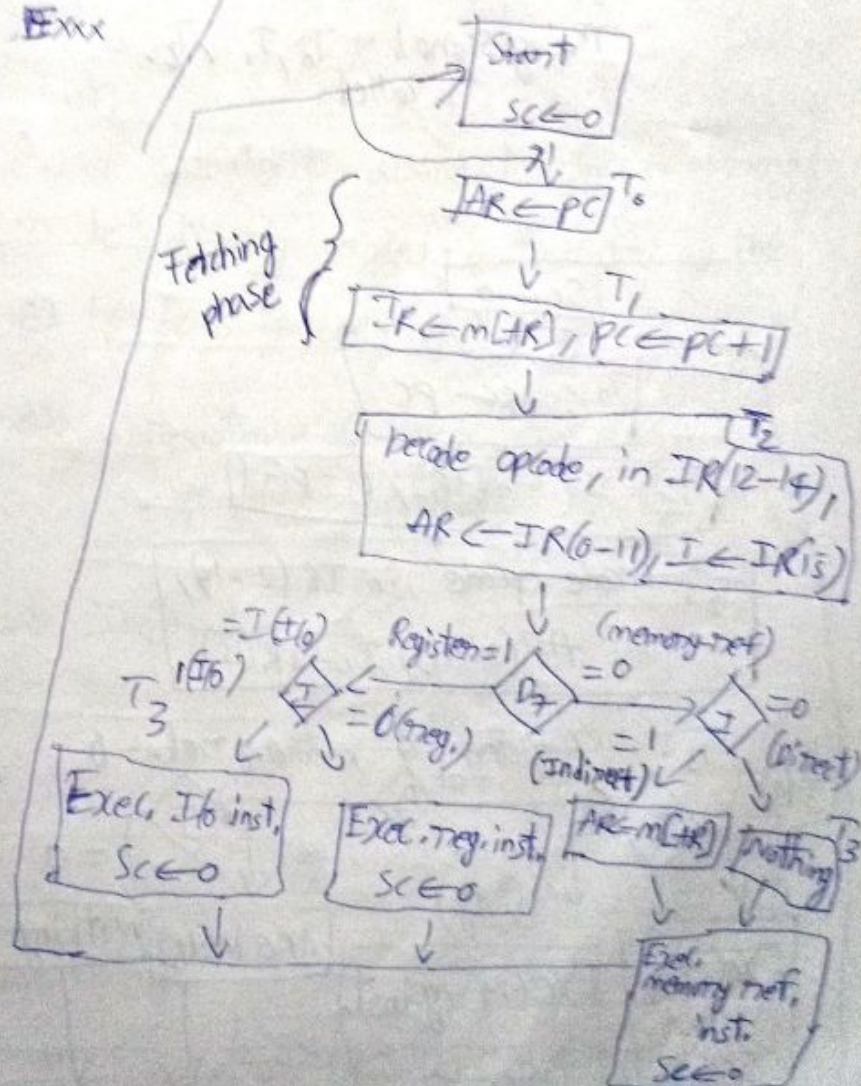 Start
SC←0
AR←PC
T₀
Fetching
phase
T₁
IR←m[AR], PC←PC+1
T₂
Decode opcode, in IR(12-14),
AR←IR(0-11), I←IR(15)
=1(I/o)
Register=1
(memory-ref)
D₇
=0
1(I/o)
T₃
I
=0(reg.)
I
=0
(Direct)
=1
(Indirect)
Exec. I/o inst.
SC←0
Exec. reg. inst.
SC←0
AR←m[AR]
Nothing
T₃
Exec.
memory ref.
inst.
SC←0